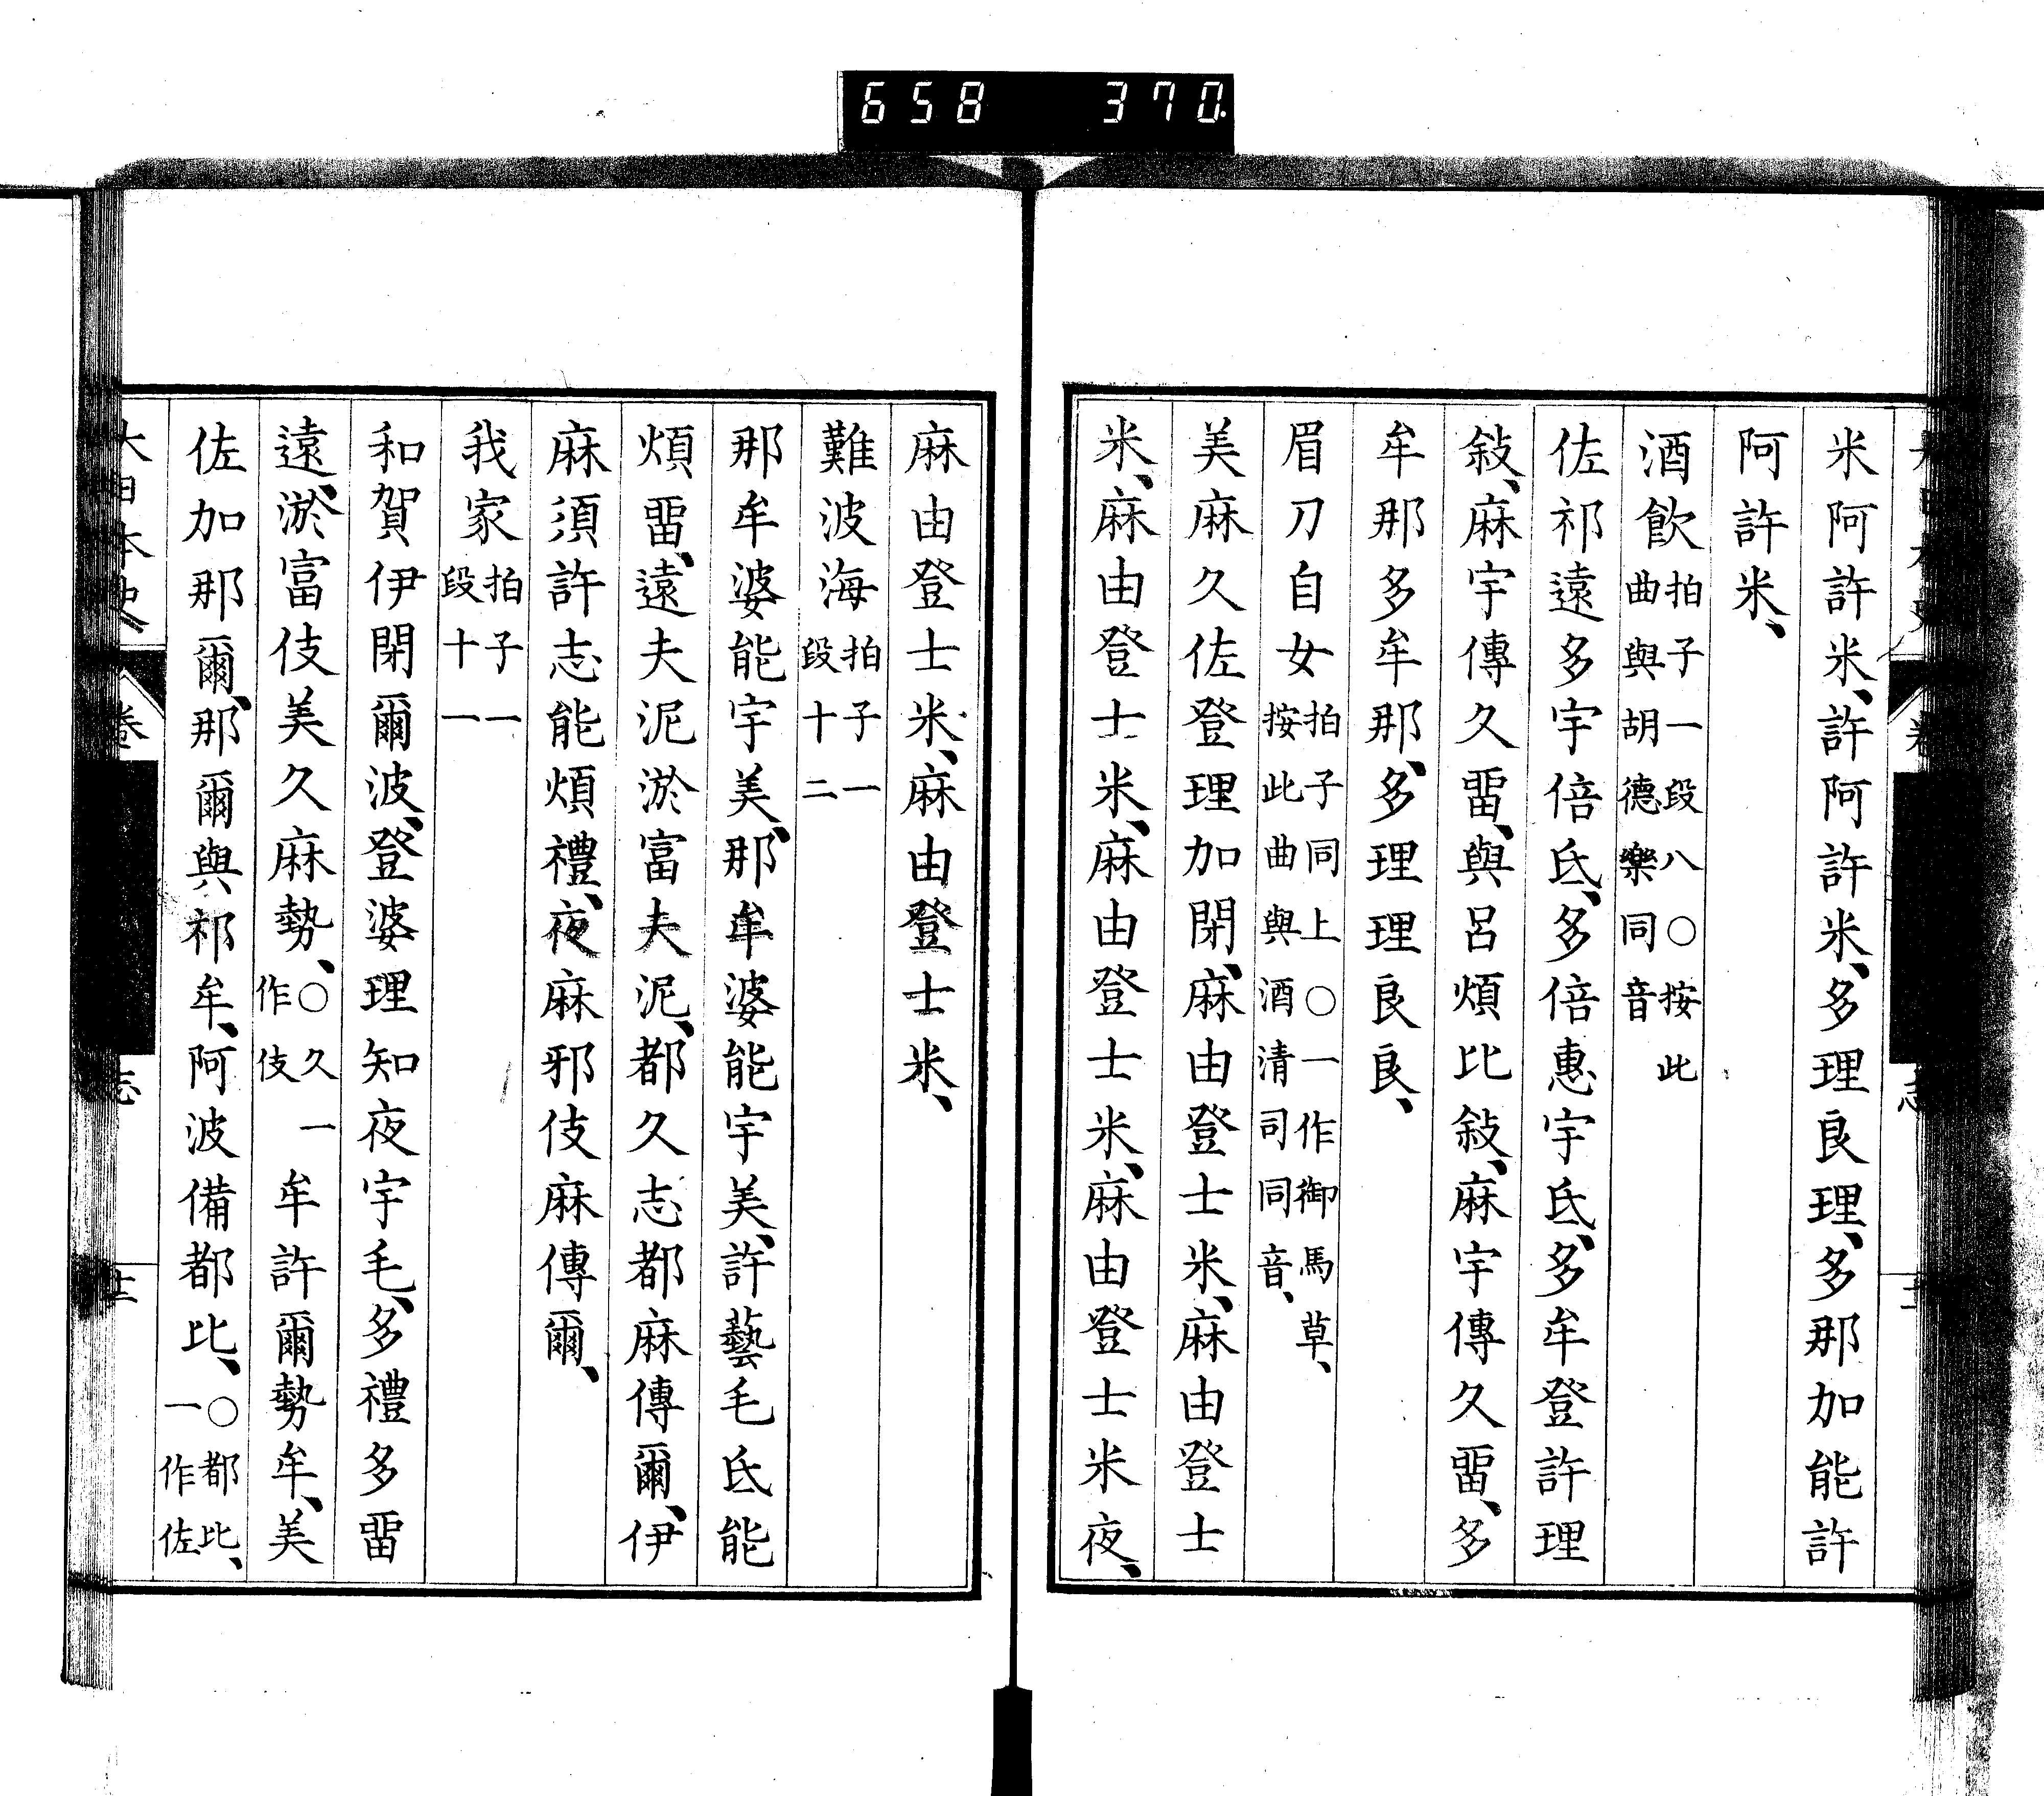 658 370.
米阿許米、許阿許米、多理良理、多那加能許
阿許米、
酒飮拍子一段八○按此
曲與胡德樂同音
佐祁遠多宇倍氐、多倍惠宇氐、多牟登許理
敍、麻宇傳久畱、與呂煩比敍、麻宇傳久畱、多
牟那多牟那、多理理良良、
眉刀自女拍子同上○一作御馬草、
按此曲與酒清司同音、
美麻久佐登理加閇、麻由登士米、麻由登士
米、麻由登士米、麻由登士米、麻由登士米夜、
麻由登士米、麻由登士米、
難波海拍子一
段十二
那牟婆能宇美、那牟婆能宇美、許藝毛氐能
煩畱、遠夫泥淤富夫泥、都久志都麻傳爾、伊
麻須許志能煩禮、夜麻邪伎麻傳爾、
我家拍子一
段十一
和賀伊閇爾波、登婆理知夜宇毛、多禮多畱
遠、淤富伎美久麻勢、○久一
作伎
牟許爾勢牟、美
佐加那爾、那爾與祁牟、阿波備都比、○都比、
一作佐
大日本史
卷
志